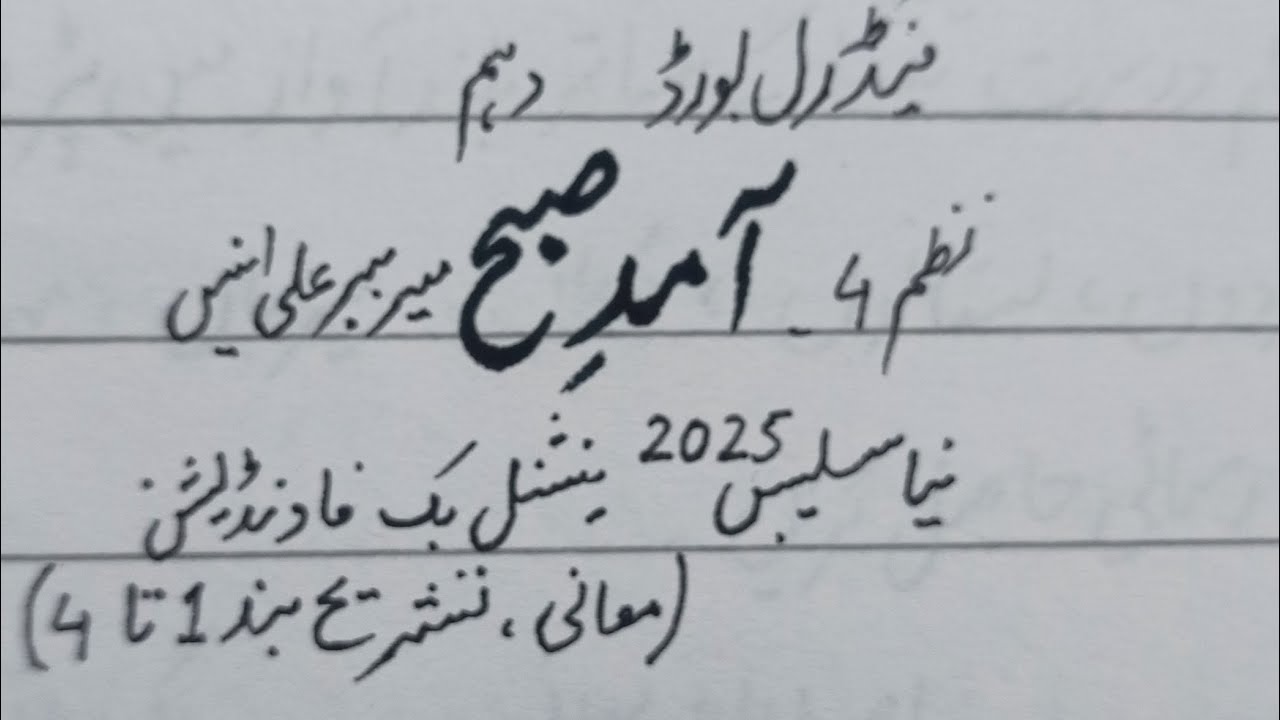 فیڈرل بورڈ دہم
نظم 4 - آمدِ صبح میر ببر علی انیس
نیا سلیبس 2025 نیشنل بک فاونڈیشن
(معانی، تشریح بند 1 تا 4)